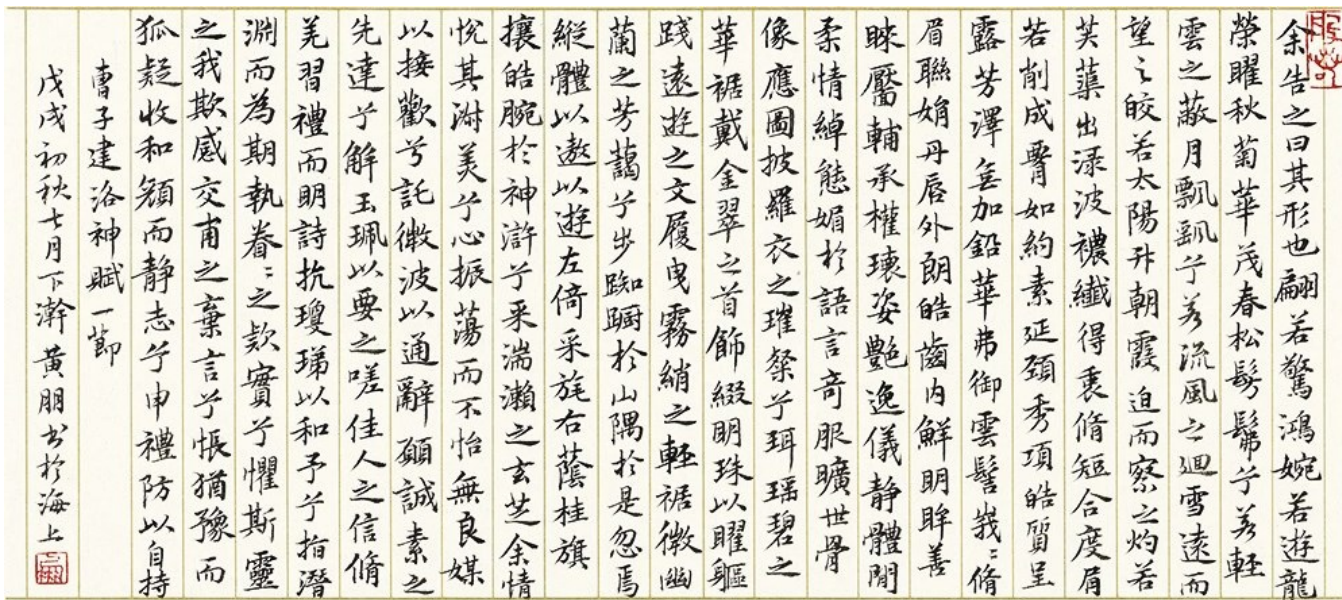 余告之曰其形也翩若驚鴻婉若遊龍
榮曜秋菊華茂春松髣髴兮若輕
雲之蔽月飄颻兮若流風之迴雪遠而
望之皎若太陽升朝霞迫而察之灼若
芙蕖出淥波襛纖得衷脩短合度肩
若削成腰如約素延頸秀項皓質呈
露芳澤無加鉛華弗御雲髻峩〻脩
眉聯娟丹唇外朗皓齒内鮮明眸善
睞靨輔承權瓌姿艷逸儀静體閒
柔情綽態媚於語言奇服曠世骨
像應圖披羅衣之璀粲兮珥瑶碧之
華裾戴金翠之首飾綴明珠以耀軀
踐遠遊之文履曳霧綃之輕裾微幽
蘭之芳藹兮步踟躕於山隅於是忽焉
縱體以遨以遊左倚采旄右蔭桂旗
攘皓腕於神滸兮采湍瀨之玄芝余情
悅其淑美兮心振蕩而不怡無良媒
以接歡兮託微波以通辭願誠素之
先達兮解玉珮以要之嗟佳人之信脩
羌習禮而明詩抗瓊珶以和予兮指潛
淵而為期執眷〻之款實兮懼斯靈
之我欺感交甫之棄言兮悵猶豫而
狐疑收和顏而静志兮申禮防以自持
曹子建洛神賦一節
戊戌初秋七月下澣黃朋书於海上